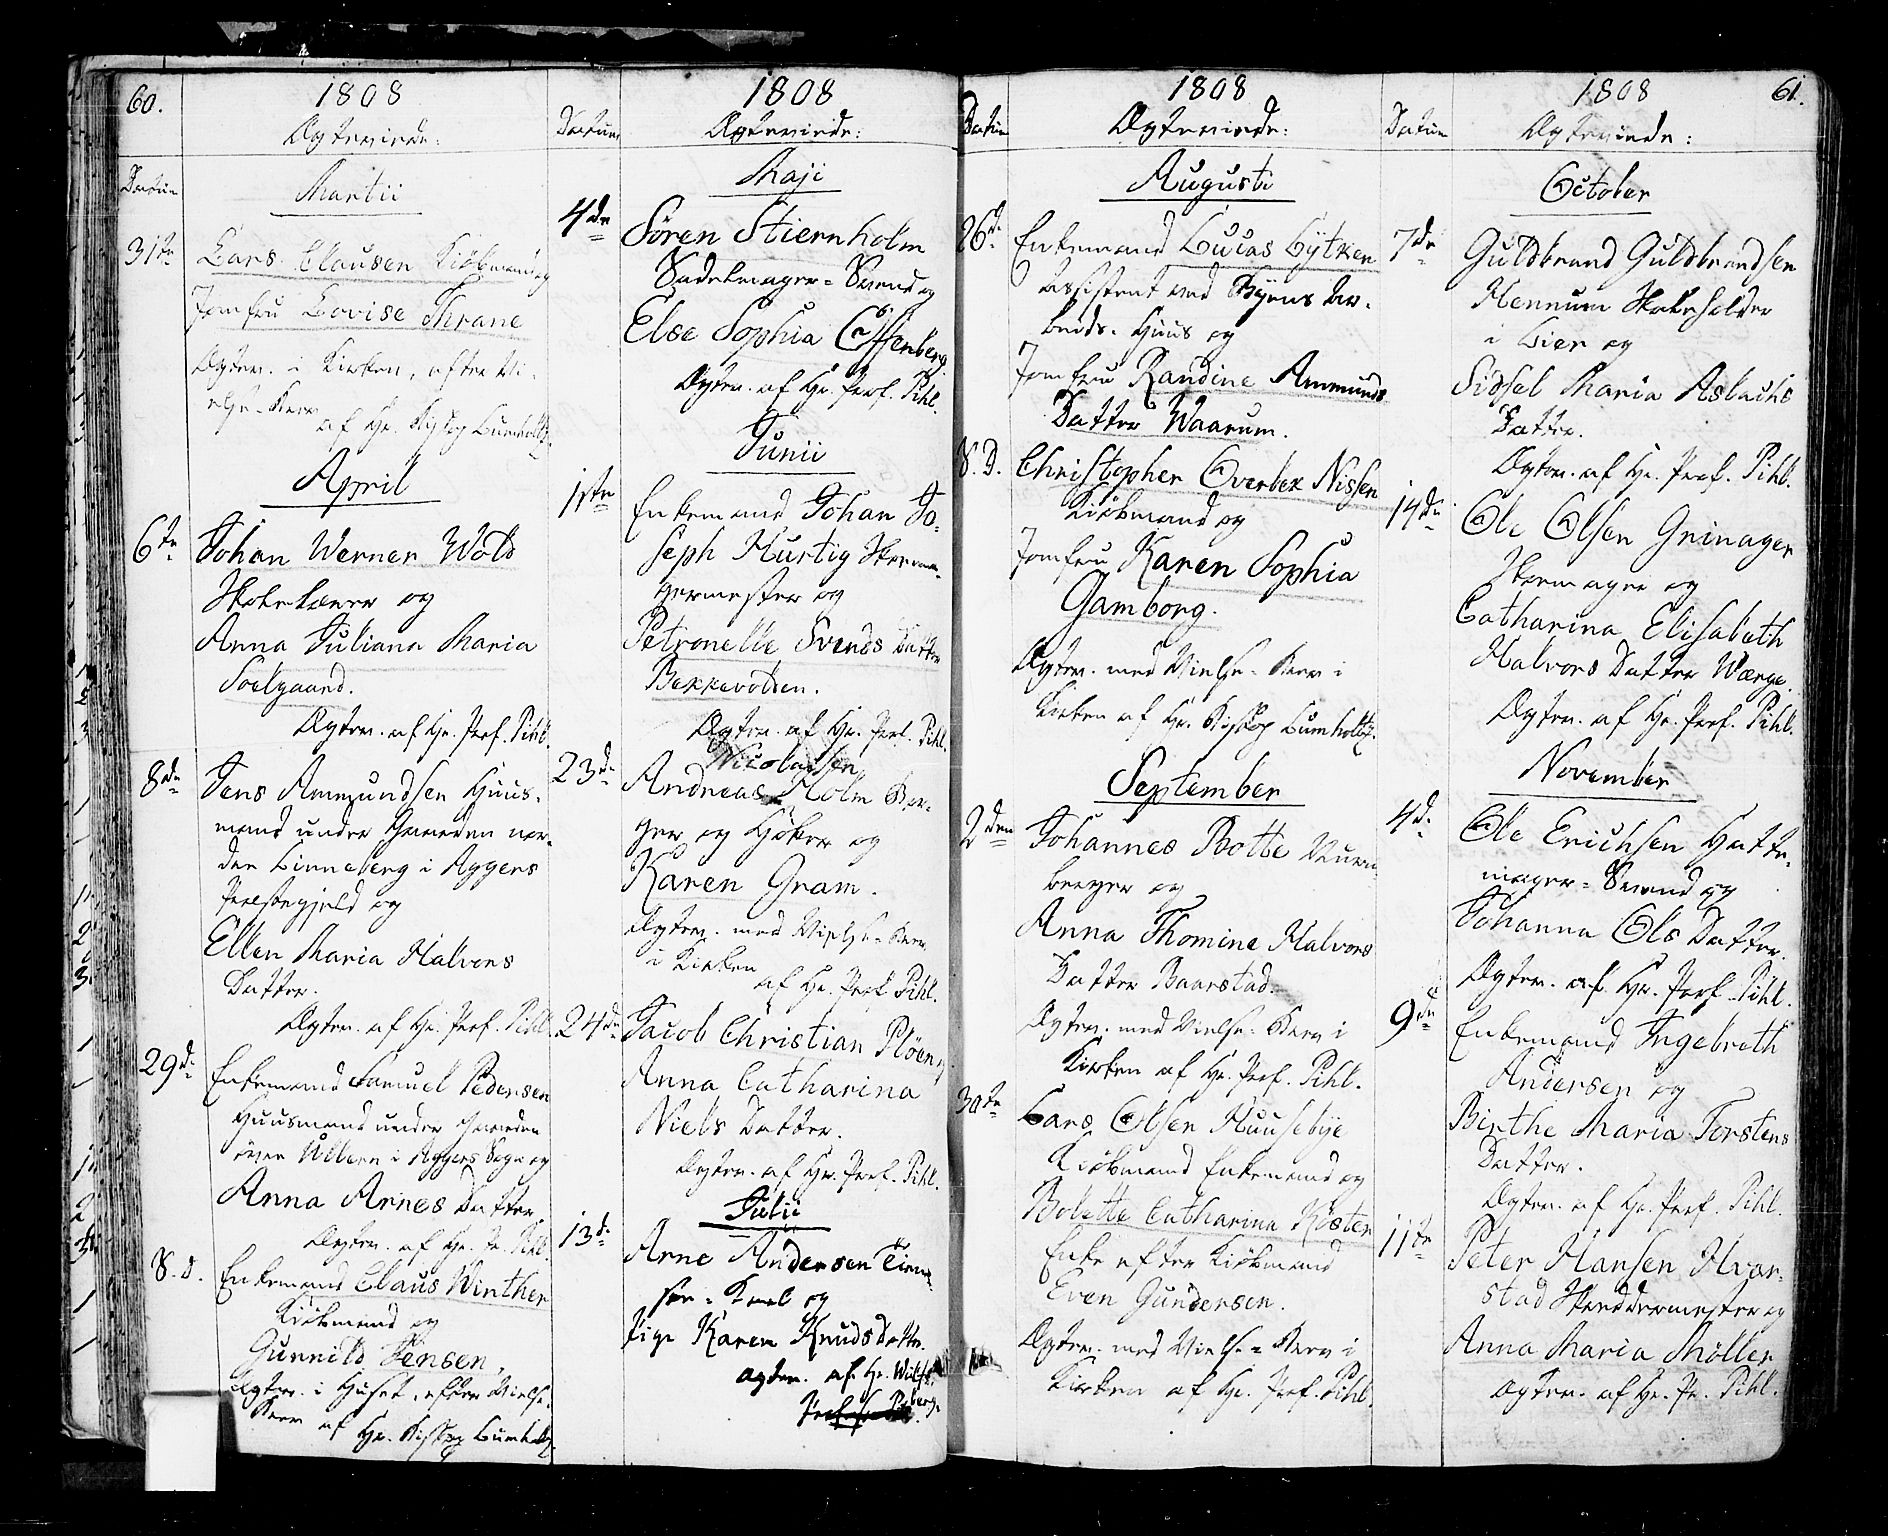 60.
1808
Ægteviede:
Datum
Martii
31te
Lars Clausen Kiöbmand og
Jomfru Lovise Thrane
Ægtev. i Kirken, efter Vi-
else-Brev
af Hr. Biskop Bumholtz
April
6te
Johan Werner Wold
Skolelærer og
Anna Juliana Maria
Soelgaard.
Ægtev. af Hr. Prof. Pihl.
8de
Jens Ammundsen Huus-
mand under Gaarden nor-
dre Linneberg i Aggers
Præstegjeld og
Ellen Maria Halvors
Datter.
Ægtev. af Hr. Prof. Pihl.
29de
Enkemand Samuel Pedersen
Huusmand under Gaarden
övre Ullern i Aggers Sogn og
Anna Arnes Datter
Ægtev. af Hr. Pr. Pihl.
S. D.
Enkemand Claus Winther
Kiöbmand og
Gunnild Jensen,
Ægtev. i Huset, efter Vielse-
Brev af Hr. Biskop Bumholtz
Datum
1808
Ægteviede:
Maji
4de
Sören Stiernholm
Sadelmager-Svend og
Else Sophia Offenberg
Ægtev. af Hr. Prof. Pihl.
Junii
1ste
Enkemand Johan Jo-
seph Hurtig Skoma-
germester og
Petronelle Svends Datter
Bekkevolden.
Ægtev. af Hr. Prof. Pihl.
23de
Nicolaisen
Andreas Holm Bor-
ger og Höker og
Karen Gram.
Ægtev. med Vielse-Brev
i Kirken
af Hr. Prof. Pihl.
24de
Jacob Christian Plöen og
Anna Catharina
Niels Datter.
Ægtev. af Hr. Prof. Pihl.
Julii
13de
Arne Andersen Tiene-
ste-Karl og
Pige Karen Knuds Datter
Ægtev. af Hr.
Datum
1808
Ægteviede:
Augusti
26de
Enkemand Lucas Lytken
Assistent ved Byens Ar-
beids-Huus og
Jomfru Randine Ammunds
Datter Waarum.
S. D.
Christopher Overbek Nissen
Kiöbmand og
Jomfru Karen Sophia
Gamborg.
Ægtev. med Vielse-Brev i
Kirken af Hr. Biskop Bumholtz.
September
2den
Johannes Botte
og
Anna Thomine Halvors
Datter Baarstad.
Ægtev. med Vielse-Brev i
Kirken af Hr. Prof. Pihl.
30te
Lars Olsen Huusebÿe
Kiöbmand Enkemand og
Bolette Catharina Köster
Enke efter Kiöbmand
Even Gundersen.
Ægtev. med Vielse-Brev i
Kirken af Hr. Prof. Pihl.
Datum
1808
61.
Ægteviede:
October
7de
Guldbrand Guldbrandsen
Hennum Skoleholder
i Lier og
Sidsel Maria Aslachs
Datter.
Ægtev. af Hr. Prof. Pihl.
14de
Ole Olsen Grinager
Skomager og
Catharina Elisabeth
Halvors Datter Wærge.
Ægtev. af Hr. Prof. Pihl.
November
4de
Ole Erichsen Hatte-
mager-Svend og
Johanna Ols Datter.
Ægtev. af Hr. Prof. Pihl.
9de
Enkemand Ingebreth
Andersen og
Birthe Maria Torstens
Datter.
Ægtev. af Hr. Prof. Pihl.
11te
Peter Hansen Hvar-
stad Skreddermester og
Anna Maria Möller
Ægtev. af Hr. Pr. Pihl.